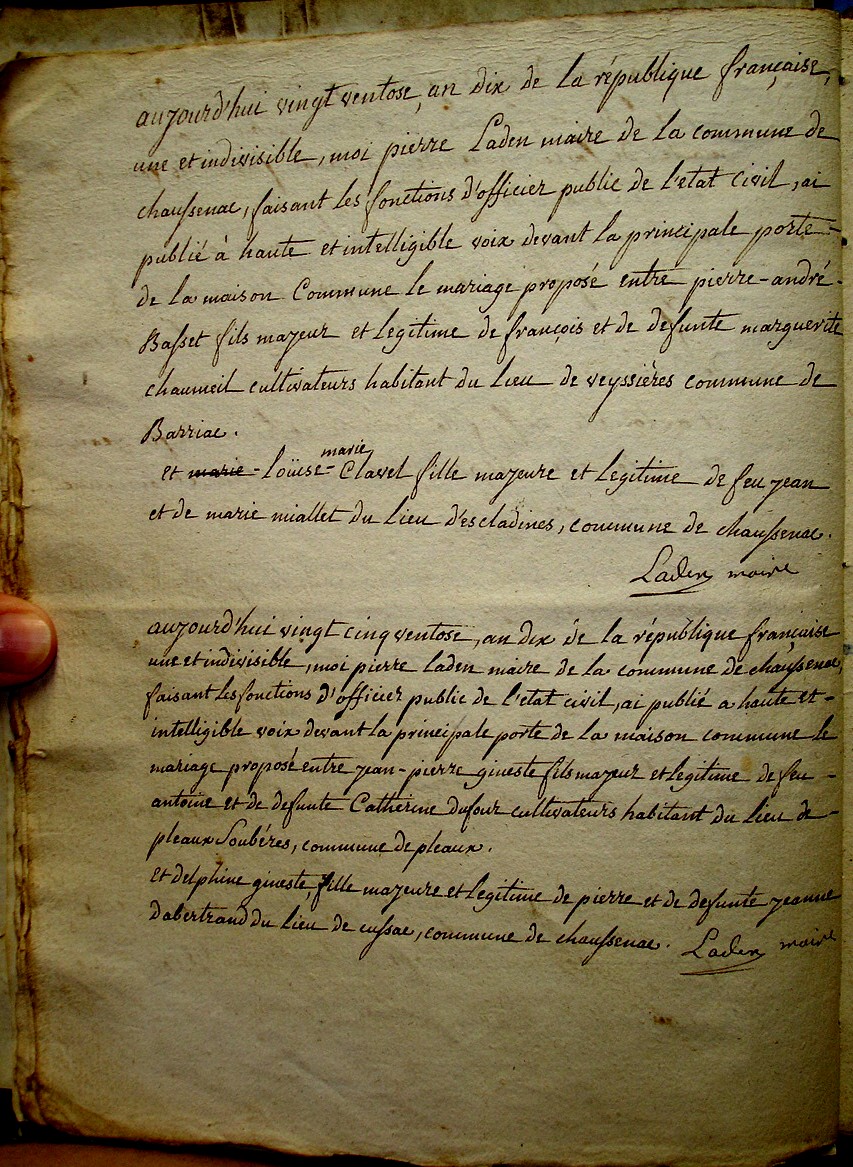 aujourd'hui vingt ventose, an dix de la république française,
une et indivisible, moi pierre Laden maire de la commune de
chaussenac, faisant les fonctions d'officier public de l'etat civil, ai
publié à haute et intelligible voix devant la principale porte
de la maison Commune le mariage proposé entre pierre-andré
Basset fils majeur et legitime de françois et de defunte marguerite
chaumeil cultivateurs habitant du lieu de veyssières commune de
Barriac.
marie
et marie-loüise-Clavel fille majeure et legitime de feu jean
et de marie miallet du lieu d'escladines, commune de chaussenac.
Laden maire
aujourd'hui vingt cinq ventose, an dix de la république française
une et indivisible, moi pierre laden maire de la commune de chaussenac,
faisant les fonctions d'officier public de l'etat civil, ai publié a haute et
intelligible voix devant la principale porte de la maison commune le
mariage proposé entre jean-pierre gineste fils majeur et legitime de feu
antoine et de defunte Catherine dufour cultivateurs habitant du lieu de
pleaux Soubéres, commune de pleaux.
Et delphine gineste, fille majeure et legitime de pierre et de defunte jeanne
Dabertrand du lieu de cussac, commune de chaussenac. Laden maire